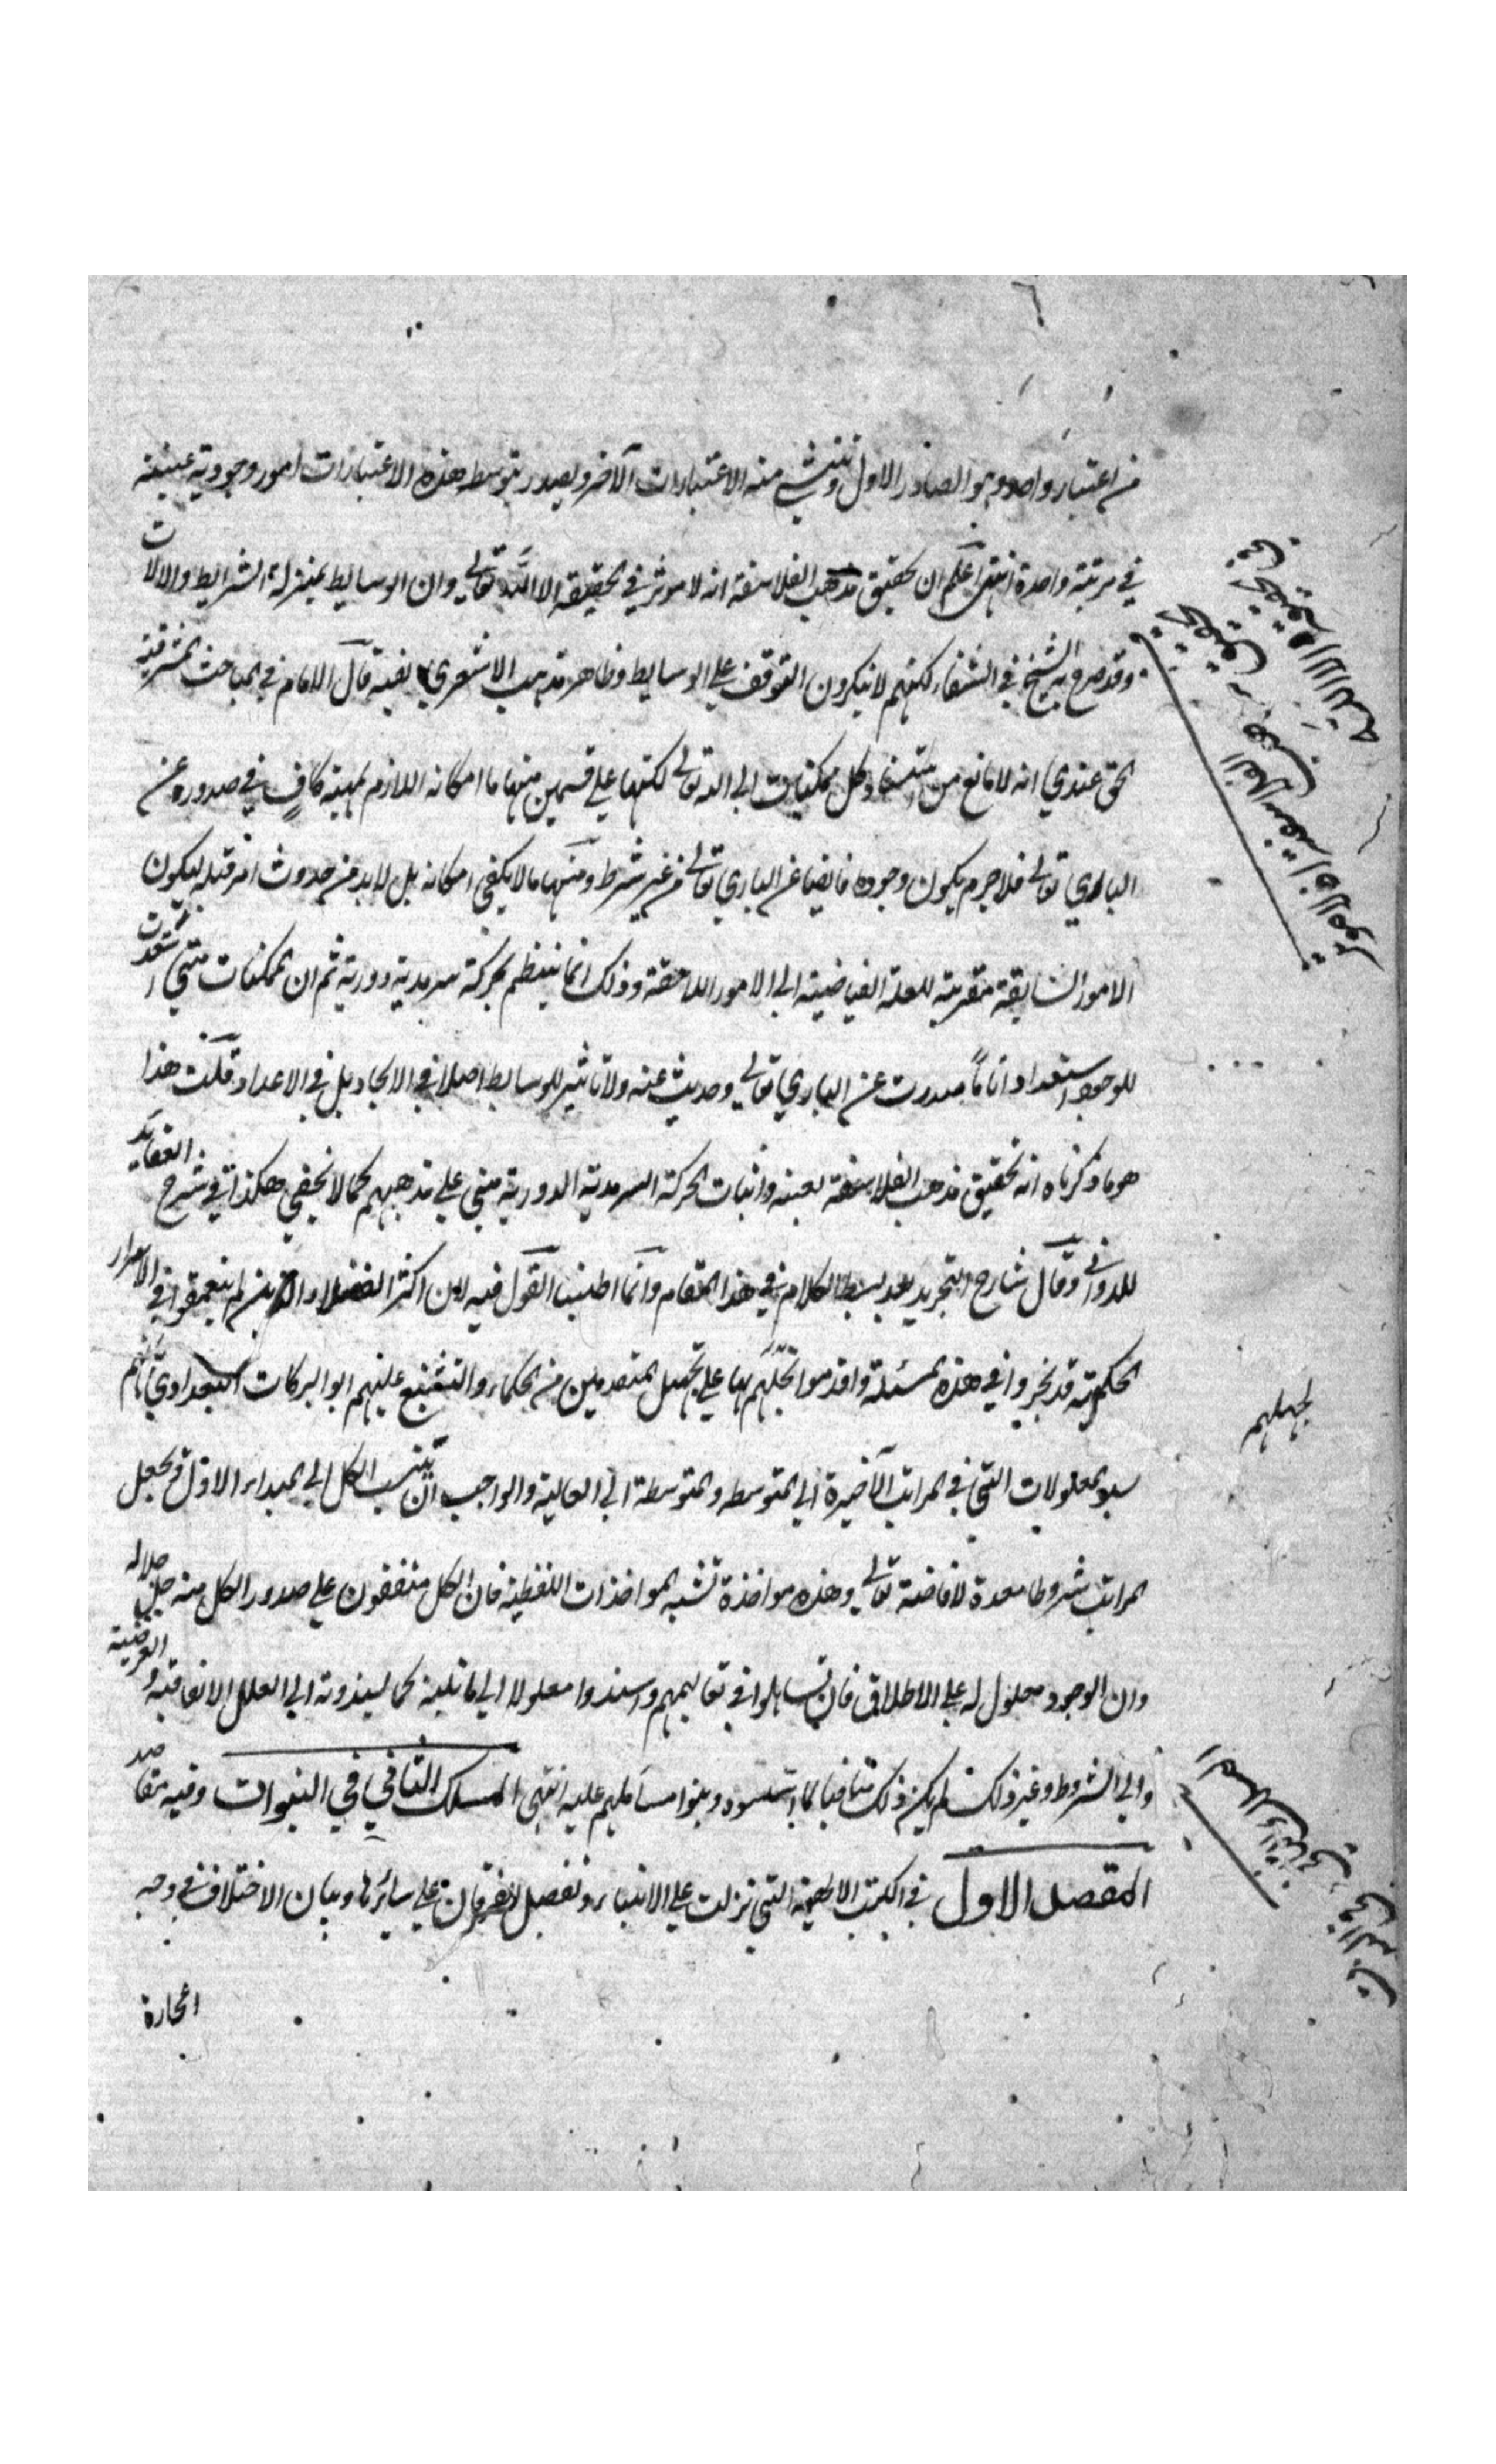 من اعتبار واحد وهو الصادر الاول وتنشئ منه الاعتبارات الآخر ويصدر بتوسط هذه الاعتبارات امور وجودية
في مرتبة واحدة انتهى اعلم ان تحقيق مذهب الفلاسفة انه لا موثر في الحقيقة الا الله تعالى وان الوسايط بمنزلة الشرايط والالات
وقد صرح به الشيخ في الشفاء لكنهم لا ينكرون التوقف على الوسايط وظاهر مذهب الاشعري قال الامام في المباحث المشرقية
الحق عندي انه لا مانع من استناد كل الممكنات الى الله تعالى لكنها على قسمين منها ما امكانه اللازم لمهيته كافٍ في صدوره عن
الباري تعالى فلا جرم يكون وجوده فايضا عن الباري تعالى من غير شرط ومنها ما لا يكفي امكانه بل لا بد من حدوث امر قبله ليكون
الامور السابقة مقربة للعلة الفياضية الى الامور اللاحقة وذلك انما ينتظم بحركة سرمدية دورية ثم ان الممكنات متى استعدت
للوجود استعدادا تاماً صدرت عن الباري تعالى وحدث عنه ولا تاثير للوسايط اصلا في الايجاد بل في الاعداد قلت هذا
هو ما ذكرناه انه تحقيق مذهب الفلاسفة بعينه واثبات الحركة السرمدية الدورية مبني على مذهبهم كما لا يخفى هكذا في شرح العقايد
للدواني وقال شارح التجريد بعد بسط الكلام في هذا المقام وانما اطنب القول فيه لان اكثر الفضلاء الذين لم يتعمقوا في الاسرار
الحكمية قد تحيروا في هذه المسئلة واقدموا على تجهيل المتقدمين من الحكماء والتشنيع عليهم ابو البركات البغدادي بانهم
المعلولات التي في المراتب الآخيرة الى المتوسطه والمتوسطة الى العالية والواجب ان ينسب الكل الى المبداء الاول ويجعل
المراتب شروطا معدة لافاضة تعالى وهذه مواخذة تشبه المواخذات اللفظية فان الكل متفقون على صدور الكل منه جل جلاله
وان الوجود معلول له على الاطلاق فان تساهلوا في تعاليمهم واسندوا معلولا الى ما يليه كما يسندونه الى العلل الاتفاقية والعرضية
والى الشروط وغير ذلك لم يكن ذلك منافيا لما اسسوه وبنوا مسائلهم عليه انتهى المسلك الثاني في النبوات وفيه مقاصد
المقصد الاول في الكتب الالهية التي نزلت على الانبياء وتفضيل الفرقان على سائرها وبيان الاختلاف في وجه
لجهلهم